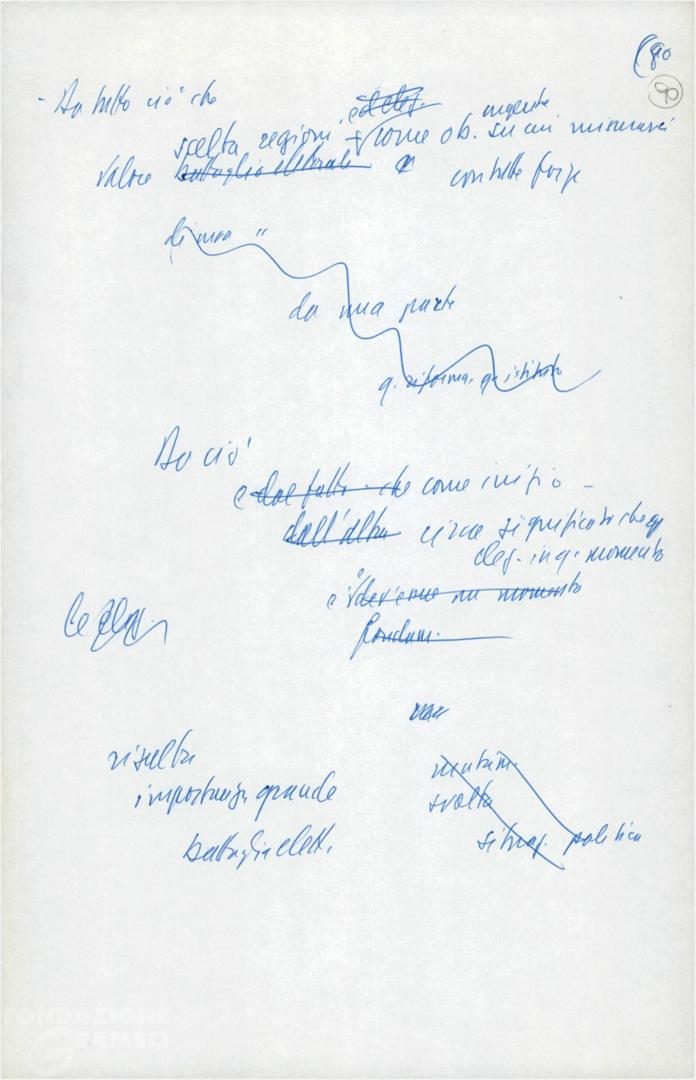 90
90
- Da tutto ciò che
scelta regioni, come ob. urgente su cui misurarsi
valore battaglia elettorale con tutte forze
di una "
da una parte
q. riforma. q. istituto
Da ciò
e dal fatto che come inizio -
dall'altra circa significato che
elez. in q. momento
è un momento
fondam.
Le elez.
risulta
importanza grande
battaglia elett.
mutam.
svolta
situaz. politica
FONDAZIONE
GRAMSCI